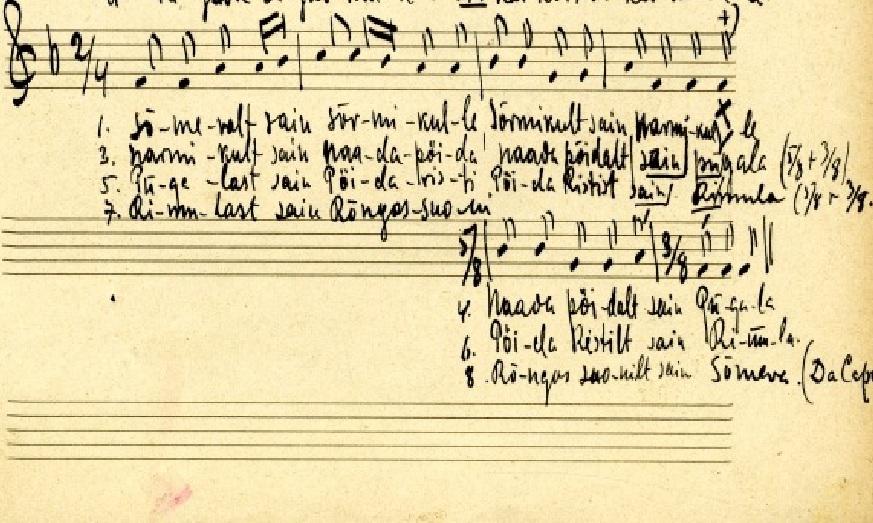 2/4
1. Sõ-me-ralt sain Sõr-mi-kul-le Sõrmikult sain Narmi-kul-le
3. Narmi-kult sain Naa-da-pöi-da' Naada pöidalt sain pügala (5/8 + 3/8)
5. Pü-ga-last sain Pöi-da-ris-ti Pöi-da Ristist sain Rimula (5/8 + 3/8.
7. Ri-mu-last sain Rõngas-suo-ni
5/8 3/8
4. Naada pöi-dalt sain Pü-ga-la
6. Pöi-da Ristilt sain Ri-mu-la.
8. Rõ-ngas suo-nilt sain Sõmera. (Da Cap